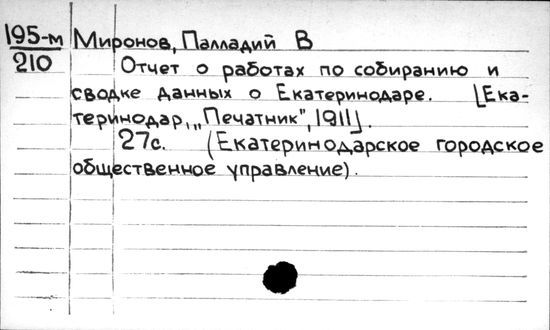 195-м Миронов, Палладий В
210 Отчет о работах по собиранию и
сводке данных о Екатеринодаре. [Ека-
теринодар, „Печатник", 1911].
27с. (Екатеринодарское городское
общественное управление).